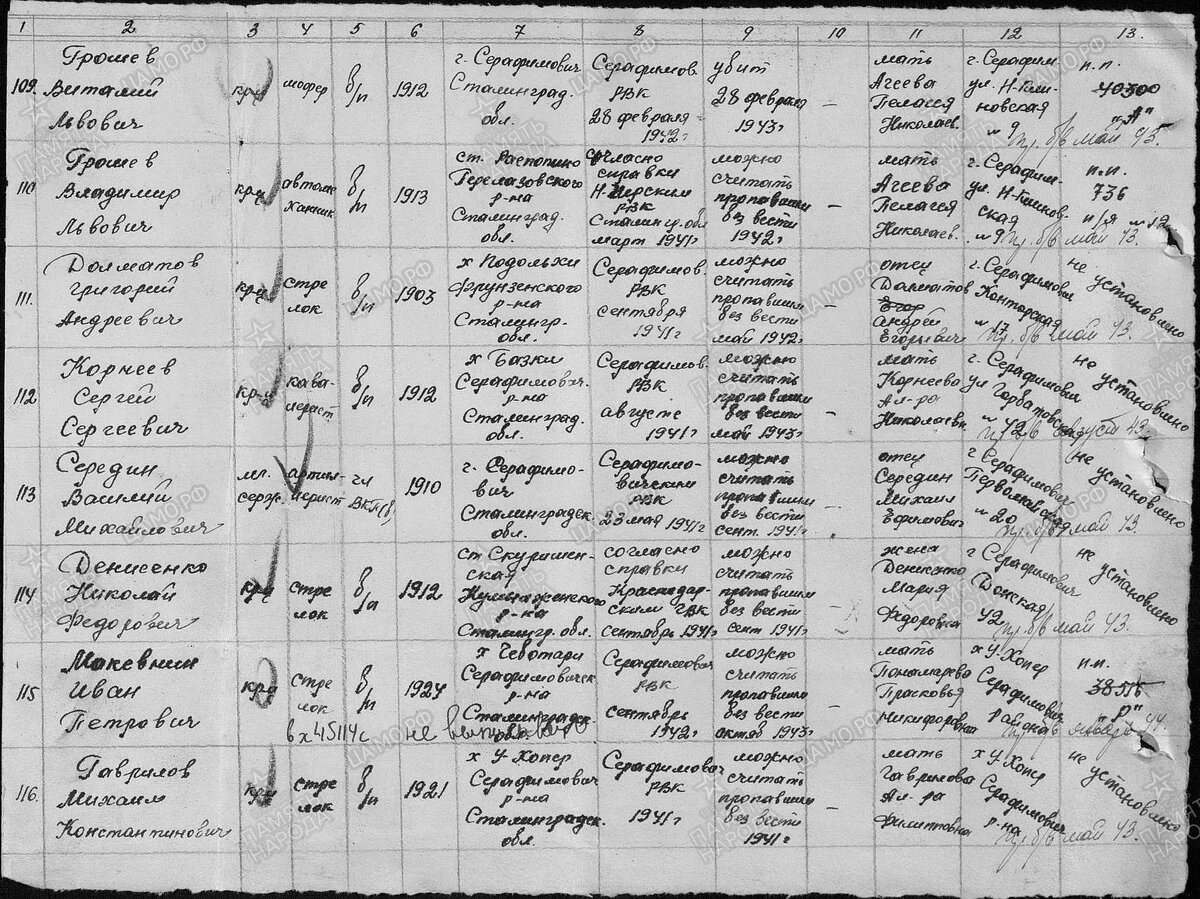 1 2 3 4 5 6 7 8 9 10 11 12 13.
Грошев г. Серафимович Серафимов. убит мать г. Серафим. п.п.
109. Виталий кр-ц шофер б/п 1912 Сталинград. РВК 28 февраля – Агеева ул. Н-Кли- 40300
Львович обл. 28 февраля 1943г Пелагея новская "А"
1942г Николаев. № 9 пр. б/в май 43.
Грошев ст. Распопино согласно можно мать г. Серафим. п.п.
110 Владимир кр-ц автоме- б/п 1913 Перелазовского справки считать – Агеева ул. Н-Клинов- 736
ханик р-на Н-Чирским РВК пропавшим Пелагея ская п/я № 12
Львович Сталинград. Сталингр. обл без вести Николаев. № 9 пр. б/в май 43.
обл. март 1941г 1942г
Долматов х Подольхи Серафимов. можно отец г. Серафимович не установлено
111. Григорий кр-ц стре б/п 1903 Фрунзенского РВК считать – Долматов Конторская
лок р-на сентября пропавшим Егор № 17
Андреевич Сталингр. 1941г без вести Андрей пр. б/в май 43.
обл. май 1942г Егорьевич
Корнеев х Базки Серафимов. можно мать г. Серафимович не установлено
112 Сергей кр-ц кава- б/п 1912 Серафимович. РВК считать – Корнеева ул Горбатовская
лерист р-на августе пропавшим Ал-ра № 42
Сергеевич Сталинград. 1941г без вести Николаевн пр. б/в август 43.
обл. май 1943г
Середин г. Серафимо- Серафимо- можно отец г Серафимович не установлено
113 Василий мл. артил- чл 1910 вич вическим считать – Середин Первомайская
серж. лерист ВКП(б) Сталинградск. РВК пропавшим Михаил № 20
Михайлович обл. 23 мая 1941г без вести Ефимович пр. б/в май 43.
сент. 1941г
Денисенко ст Скуришен- согласно можно жена г Серафимович не установлено
114 Николай кр-ц стре б/п 1912 ская справки считать – Денисенко Донская
лок Кумылженского Краснодар- пропавшим Мария 42
Федорович р-на ским ГВК без вести Федоровна пр. б/в май 43.
Сталингр. обл. сентябрь 1941г сент 1941г
Макевнин х Чеботари Серафимович можно мать х У. Хопер п.п.
115 Иван кр-ц стре б/п 1924 Серафимовичск РВК считать Пономарева Серафимович 38515
лок р-на сентябрь пропавшим Прасковья район "Р"
Петрович Сталинградск. 1942г без вести Никифоровна пр. б/в январь 44.
вх 45114с не выписывать обл. октяб 1943г
Гаврилов х У-Хопер Серафимович можно мать х У-Хопер не установлено
116. Михаил кр-ц стре б/п 1921 Серафимович РВК считать – Гаврилова Серафимович
лок р-на 1941г пропавшим Ал-ра р-на
Константинович Сталинградск. без вести Филипповна пр. б/в май 43.
обл. 1941г